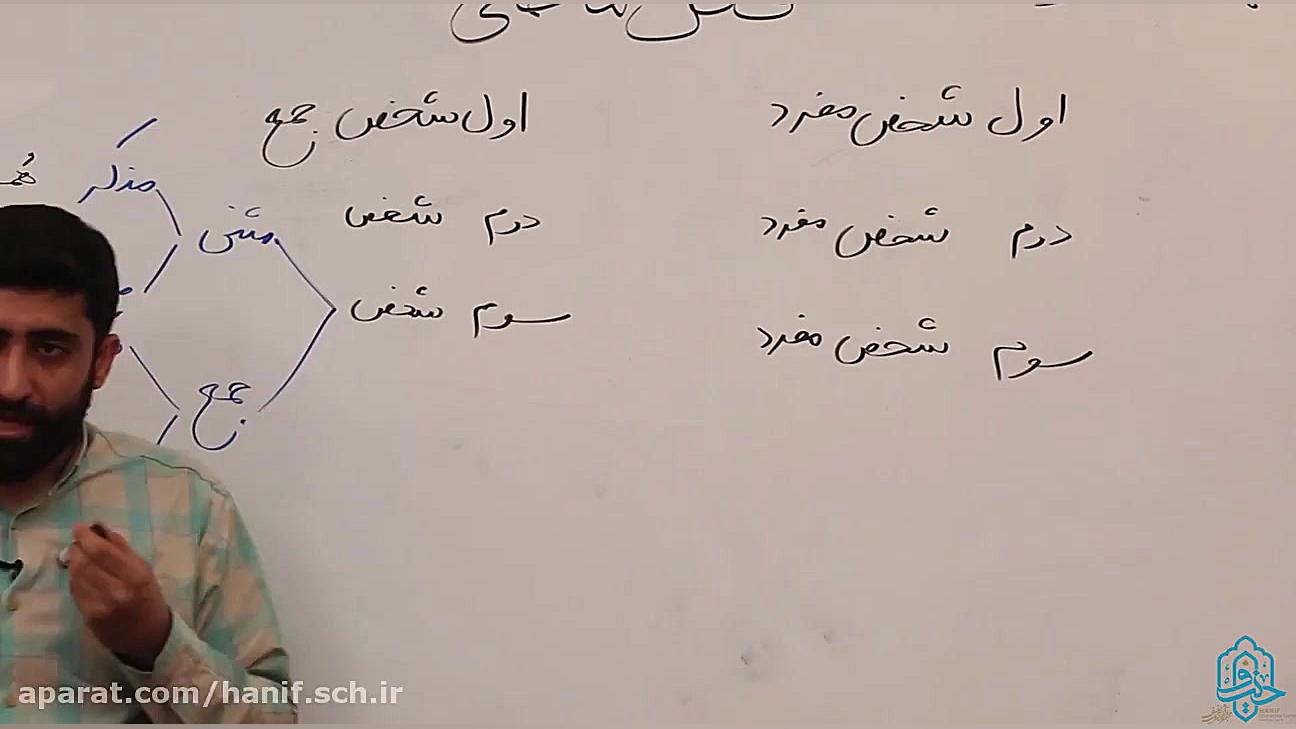 اول شخص مفرد
دوم شخص مفرد
سوم شخص مفرد
اول شخص جمع
دوم شخص
سوم شخص
مثنی
جمع
مذکر
aparat.com/hanif.sch.ir
حنیف
HANIF